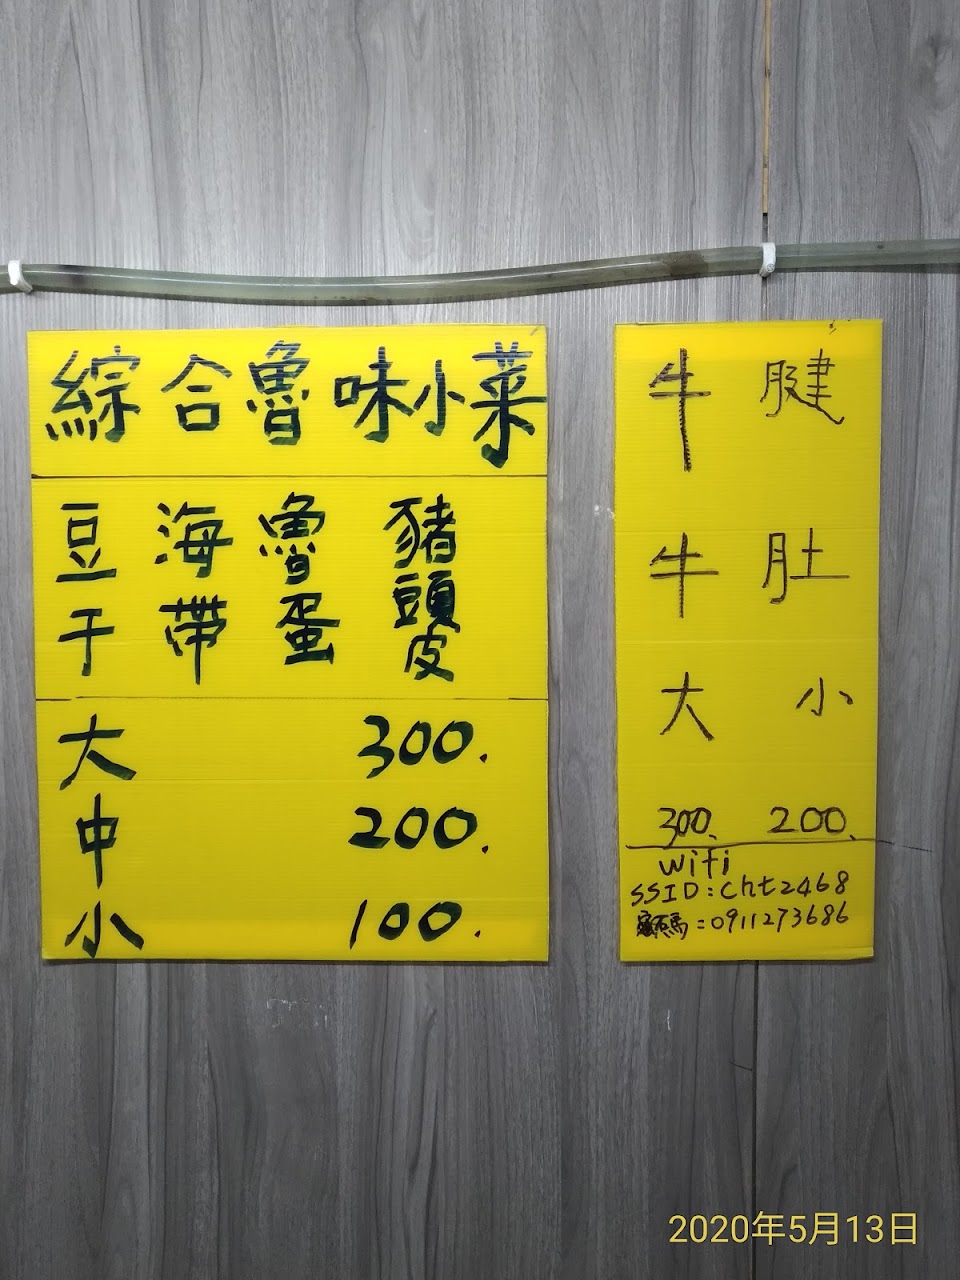 綜合魯味小菜
豆干 海帶 魯蛋 豬頭皮
大 300.
中 200.
小 100.
牛腱
牛肚
大 小
300. 200.
wifi
SSID:cht2468
碼=0911273686
2020年5月13日